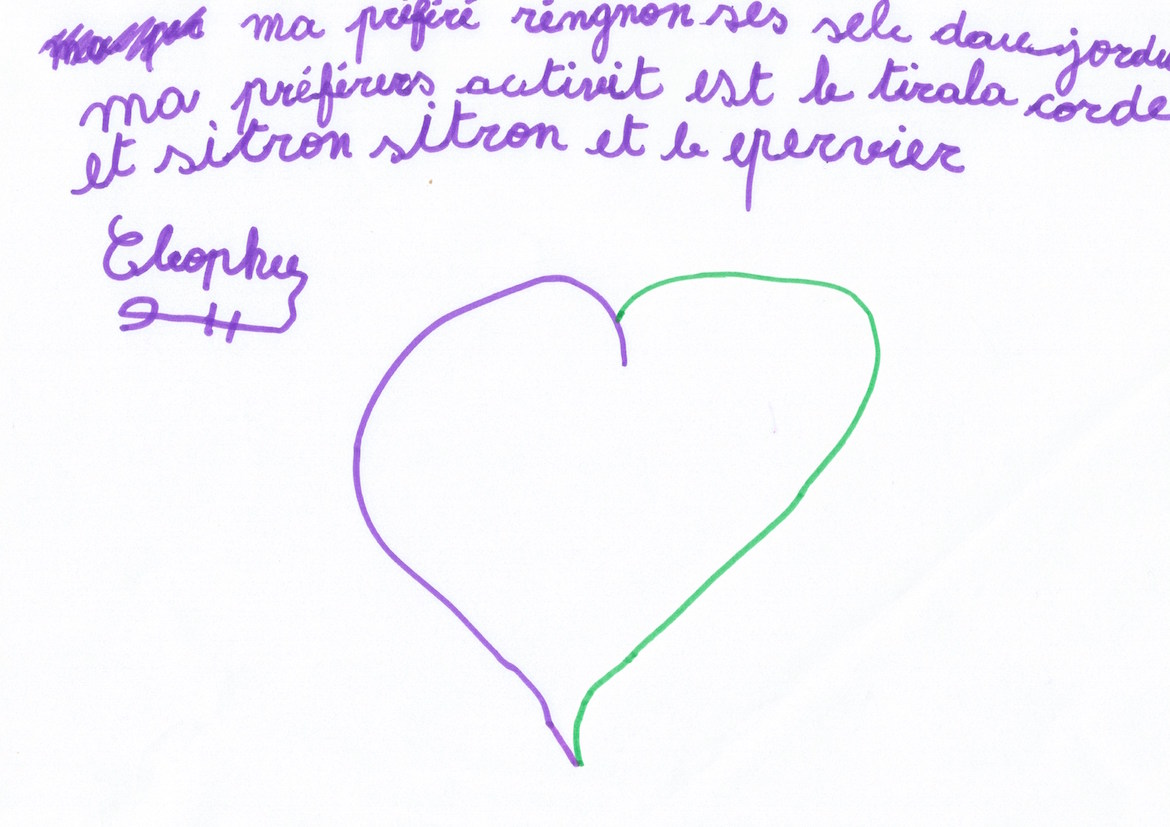 ma préféré réngnon ses sele daujordu
ma préférers activit est le tirala corde
et sitron sitron et le epervier
Cleophee